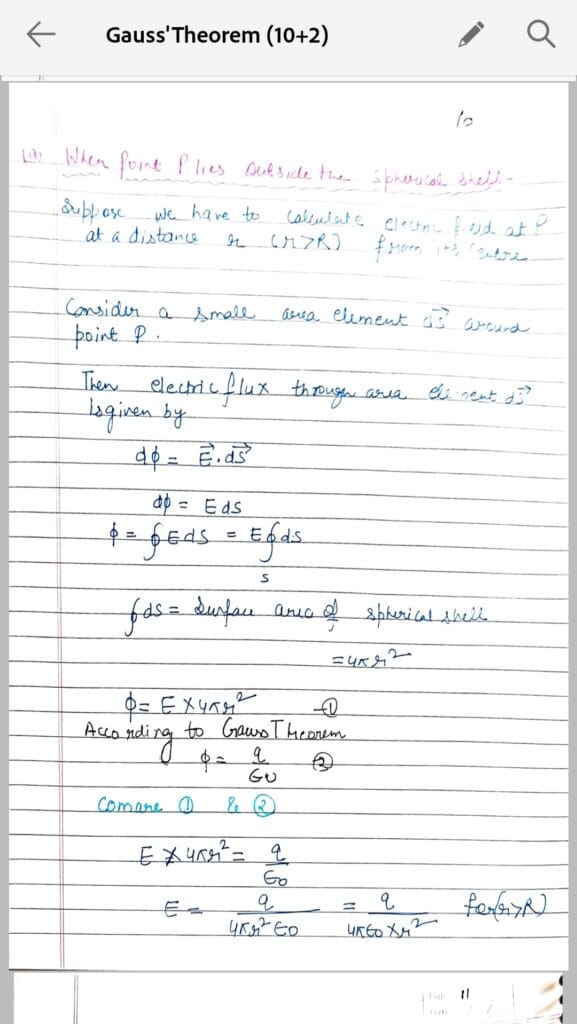 Gauss'Theorem (10+2)
10
(a) When Point P lies outside the spherical shell-
Suppose we have to calculate electric field at P
at a distance r (r>R) from its centre
Consider a small area element ds⃗ around
point P.
Then electric flux through area element ds⃗
is given by
dϕ = E⃗.ds⃗
dϕ = Eds
ϕ = ∮Eds = E∮ds
S
∮ds = Surface area of spherical shell
=4πr²
ϕ= E×4πr² —①
According to Gauss Theorem
ϕ = q/ϵ0 ②
Comare ① & ②
E×4πr² = q/ϵ0
E = q/4πr²ϵ0 = q/4πϵ0×r² for(r>R)
11